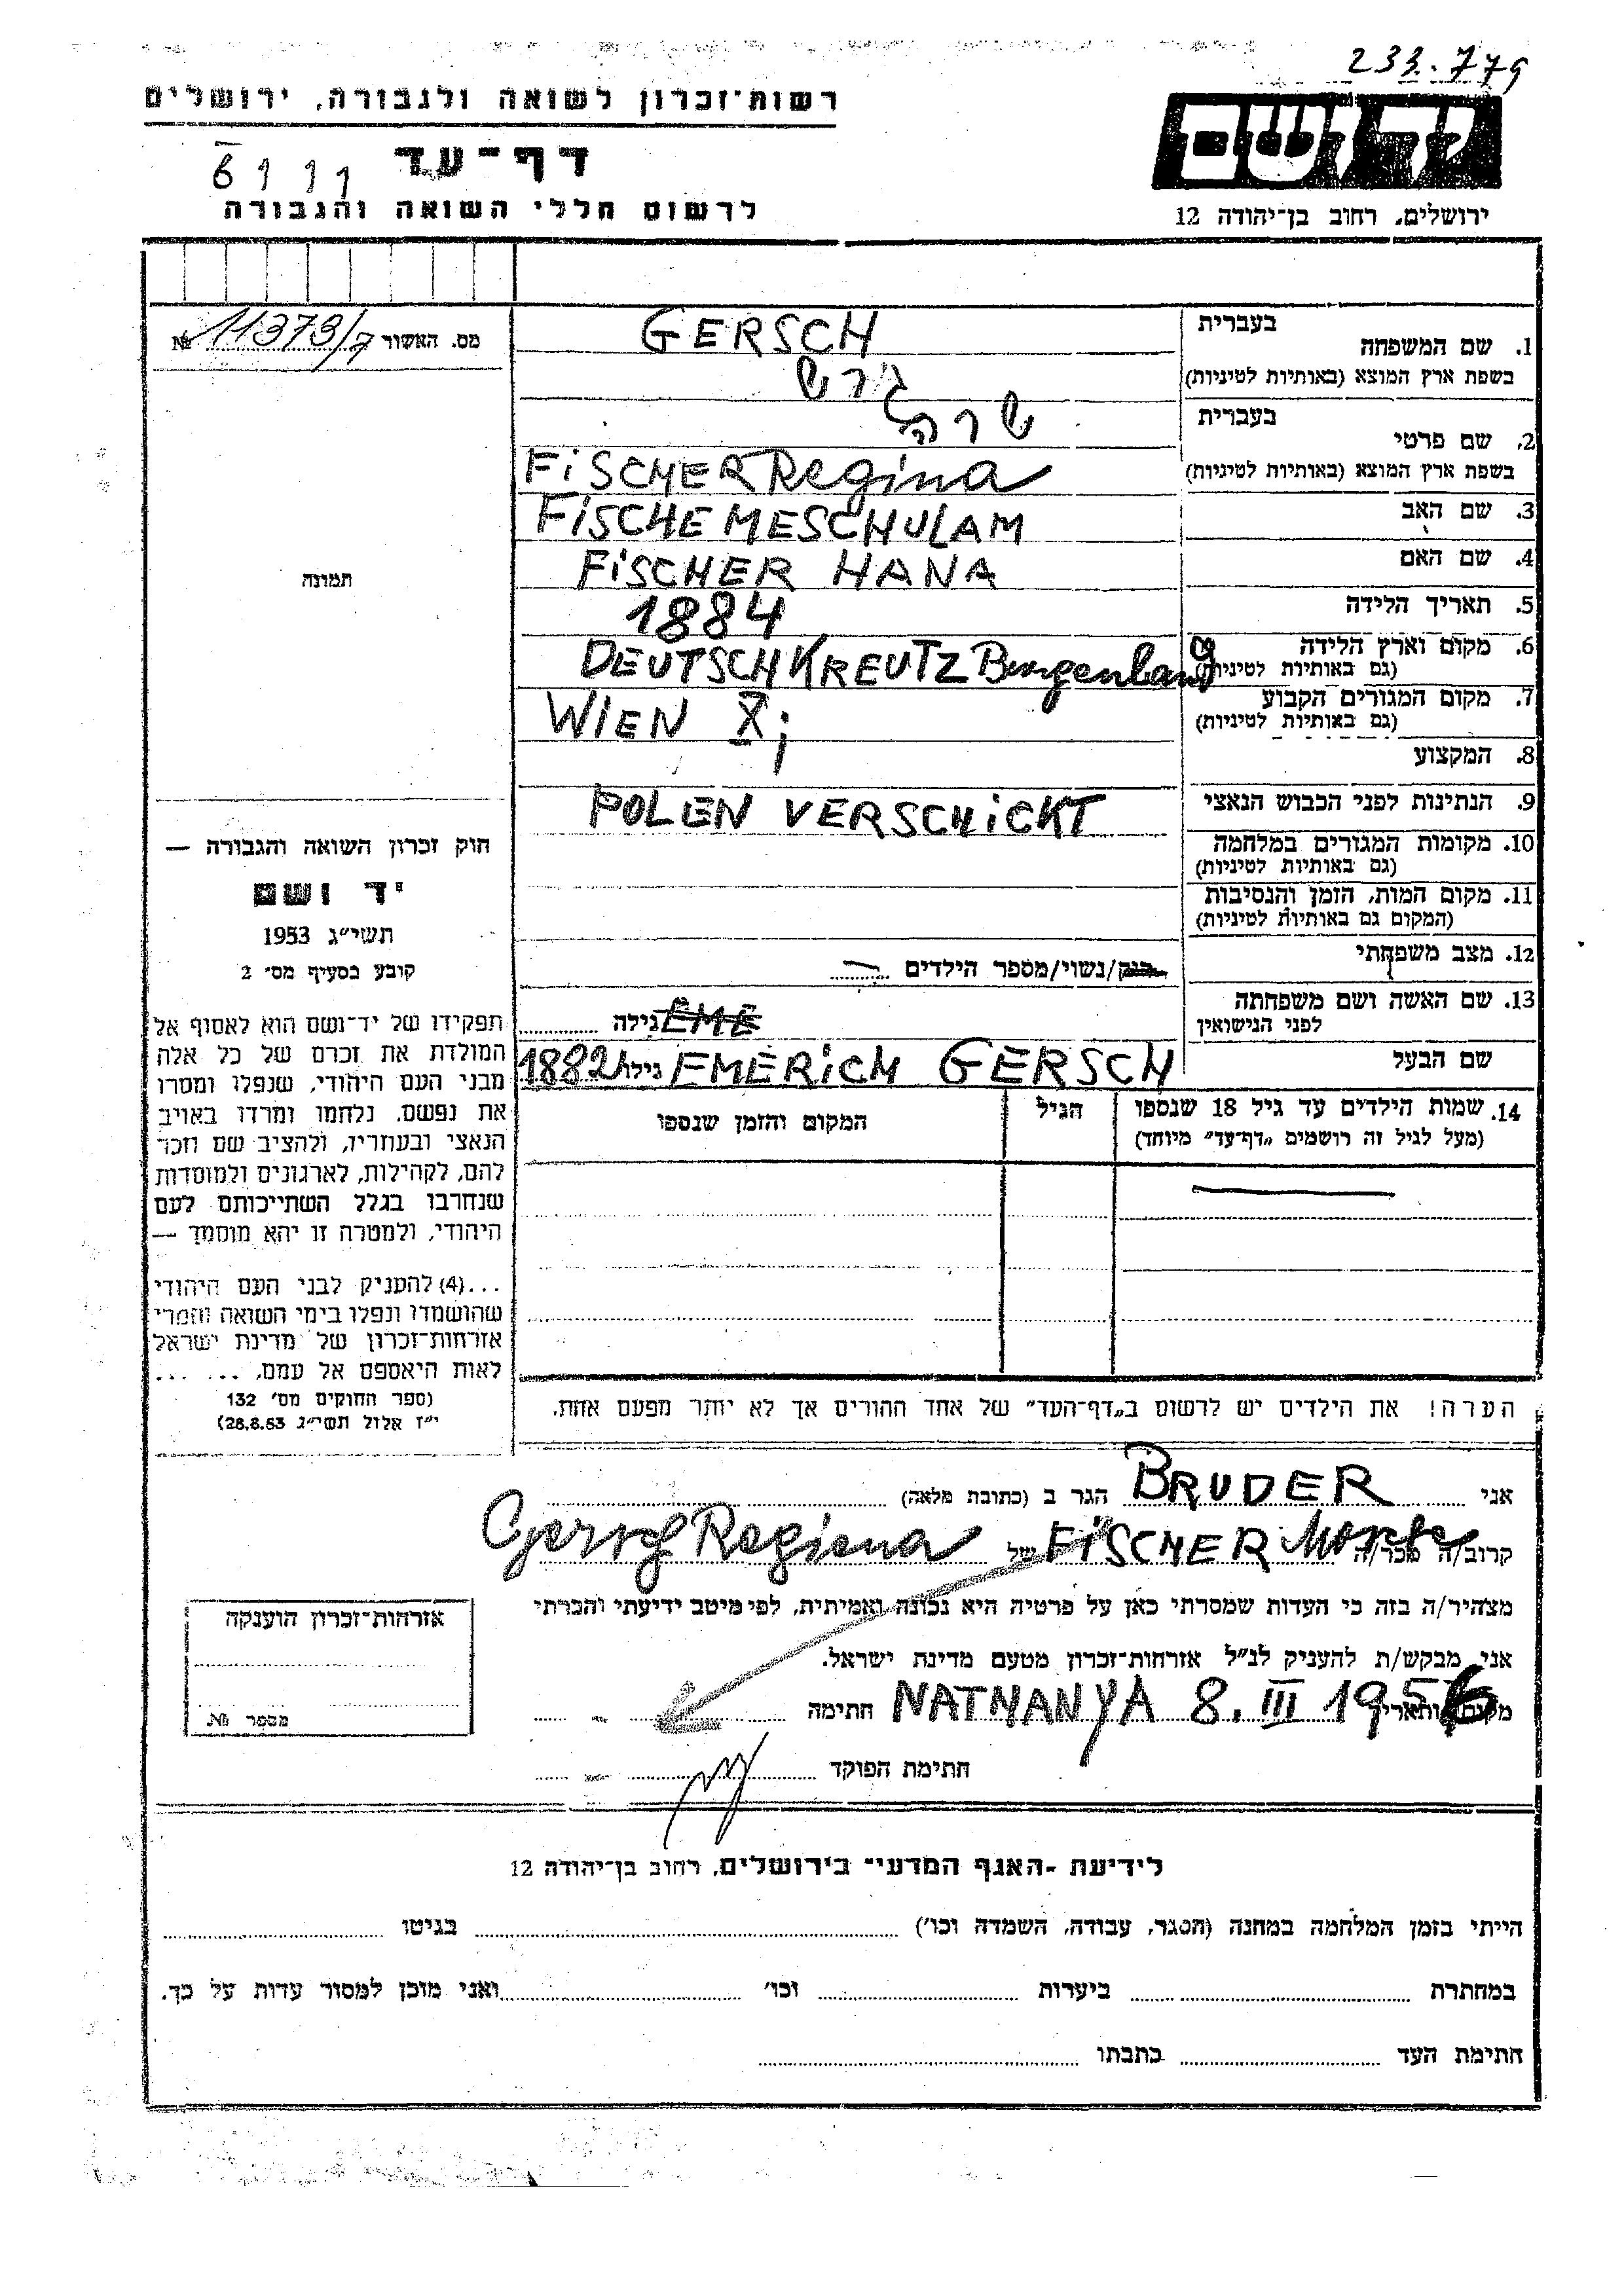 233.779
רשות־זכרון לשואה ולגבורה, ירושלים
דף־עד
לרשום חללי השואה והגבורה
ירושלים, רחוב בן־יהודה 12
מס. האשור № 11373/7
תמונה
חוק זכרון השואה והגבורה —
יד ושם
תשי״ג 1953
קובע בסעיף מס׳ 2
תפקידו של יד־ושם הוא לאסוף אל
המולדת את זכרם של כל אלה
מבני העם היהודי, שנפלו ומסרו
את נפשם, נלחמו ומרדו באויב
הנאצי ובעוזריו, ולהציב שם וזכר
להם, לקהילות, לארגונים ולמוסדות
שנחרבו בגלל השתייכותם לעם
היהודי, ולמטרה זו יהא מוסמך —
...(4) להעניק לבני העם היהודי
שהושמדו ונפלו בימי השואה והמרי
אזרחות־זכרון של מדינת ישראל
לאות היאספם אל עמם, ... ...
(ספר החוקים מס׳ 132
י״ז אלול תשי״ג 28.8.53)
בעברית
1. שם המשפחה GERSCH
בשפת ארץ המוצא (באותיות לטיניות) גרש
בעברית שרה
2. שם פרטי
בשפת ארץ המוצא (באותיות לטיניות) FiSCHER Regina
3. שם האב FiSCHE MESCHULAM
4. שם האם FiSCHER HANA
5. תאריך הלידה 1884
6. מקום וארץ הלידה DEUTSCHKREUTZ Burgenland
(גם באותיות לטיניות)
7. מקום המגורים הקבוע WIEN X;
(גם באותיות לטיניות)
8. המקצוע
9. הנתינות לפני הכבוש הנאצי POLEN VERSCHiCKT
10. מקומות המגורים במלחמה
(גם באותיות לטיניות)
11. מקום המות, הזמן והנסיבות
(המקום גם באותיות לטיניות)
12. מצב משפחתי רוק/נשוי/מספר הילדים —
13. שם האשה ושם משפחתה EME גילה
לפני הנישואין
שם הבעל EMERiCH GERSCH גילו 1882
14. שמות הילדים עד גיל 18 שנספו הגיל המקום והזמן שנספו
(מעל לגיל זה רושמים „דף־עד״ מיוחד)
הערה! את הילדים יש לרשום ב„דף־העד״ של אחד ההורים אך לא יותר מפעם אחת.
אני BRUDER הגר ב (כתובת מלאה)
קרוב/ה מכר/ה FiSCHER של Gersch Regiena
מצהיר/ה בזה כי העדות שמסרתי כאן על פרטיה היא נכונה ואמיתית, לפי מיטב ידיעתי והכרתי
אני מבקש/ת להעניק לנ״ל אזרחות־זכרון מטעם מדינת ישראל.
מקום ותאריך NATHANYA 8. III 1956 חתימה
חתימת הפוקד
אזרחות־זכרון הוענקה
מספר №
לידיעת ־האגף המדעי־ בירושלים, רחוב בן־יהודה 12
הייתי בזמן המלחמה במחנה (הסגר, עבודה, השמדה וכו׳) בגיטו
במחתרת ביערות וכו׳ ואני מוכן למסור עדות על כך.
חתימת העד כתבתו